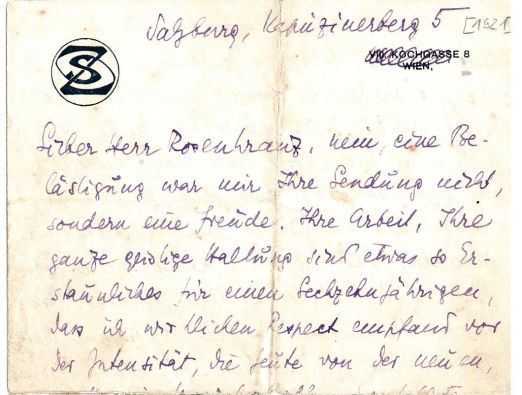 Salzburg, Kapuzinerberg 5 [1921]
SZ
VIII. KOCHGASSE 8
WIEN,
Lieber Herr Rosenkranz, nein, eine Be-
lästigung war mir Ihre Sendung nicht,
sondern eine Freude. Ihre Arbeit, Ihre
ganze geistige Haltung sind etwas so Er-
staunliches für einen Sechzehnjährigen,
dass ich wirklichen Respect empfand vor
der Intensität, die heute von der neuen,